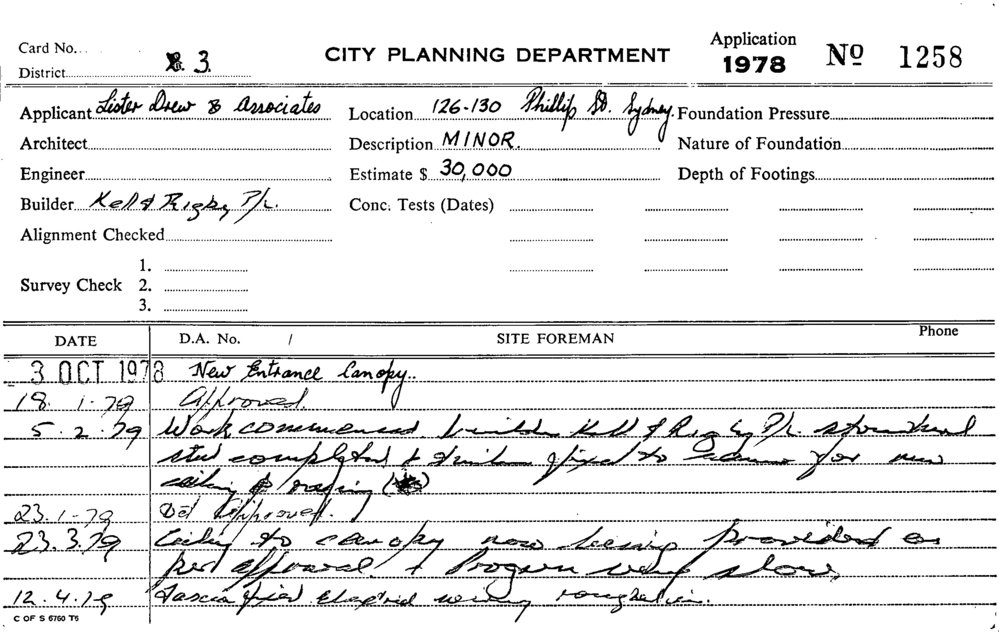 Card No...
District 3.
CITY PLANNING DEPARTMENT
Application
1978
Nº 1258
Applicant Lister Drew & Associates
Location 126-130 Phillip St. Sydney.
Foundation Pressure
Architect
Description MINOR.
Nature of Foundation
Engineer
Estimate $ 30,000
Depth of Footings
Builder Kell & Rigby P/L.
Conc. Tests (Dates)
Alignment Checked
1.
Survey Check 2.
3.
DATE D.A. No. / SITE FOREMAN Phone
3 OCT 1978 New Entrance Canopy..
18. 1. 79 Approved.
5. 2. 79 Work commenced. builder Kell & Rigby P/L. structural
steel completed & fixed to for new
ceiling
23. 1-79 Approved.
23. 3. 79 Ceiling to canopy now being provided as
per approval. & Progress very slow.
12. 4. 79 Fascia fixed Electrical wiring
C OF S 6760 T6